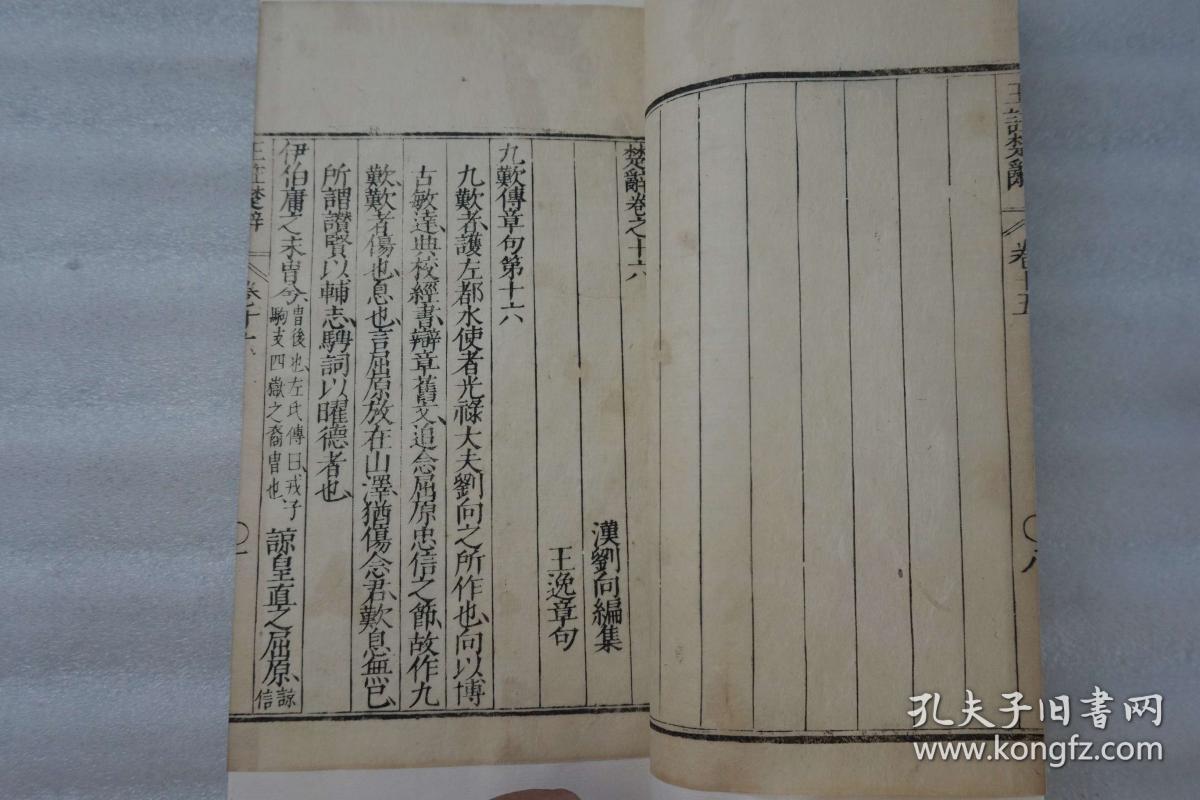 王註楚辭 卷十五 〇八
楚辭卷之十六
漢劉向編集
王逸章句
九歎傳章句第十六
九歎者護左都水使者光祿大夫劉向之所作也向以博
古敏達典校經書辯章舊文追念屈原忠信之節故作九
歎歎者傷也息也言屈原放在山澤猶傷念君歎息無已
所謂讃賢以輔志騁詞以曜德者也
伊伯庸之末胄兮
胄後也左氏傳曰戎子
駒支四嶽之裔胄也
諒皇直之屈原
諒
信
王註楚辭 卷十六 〇一
孔夫子旧书网
www.kongfz.com